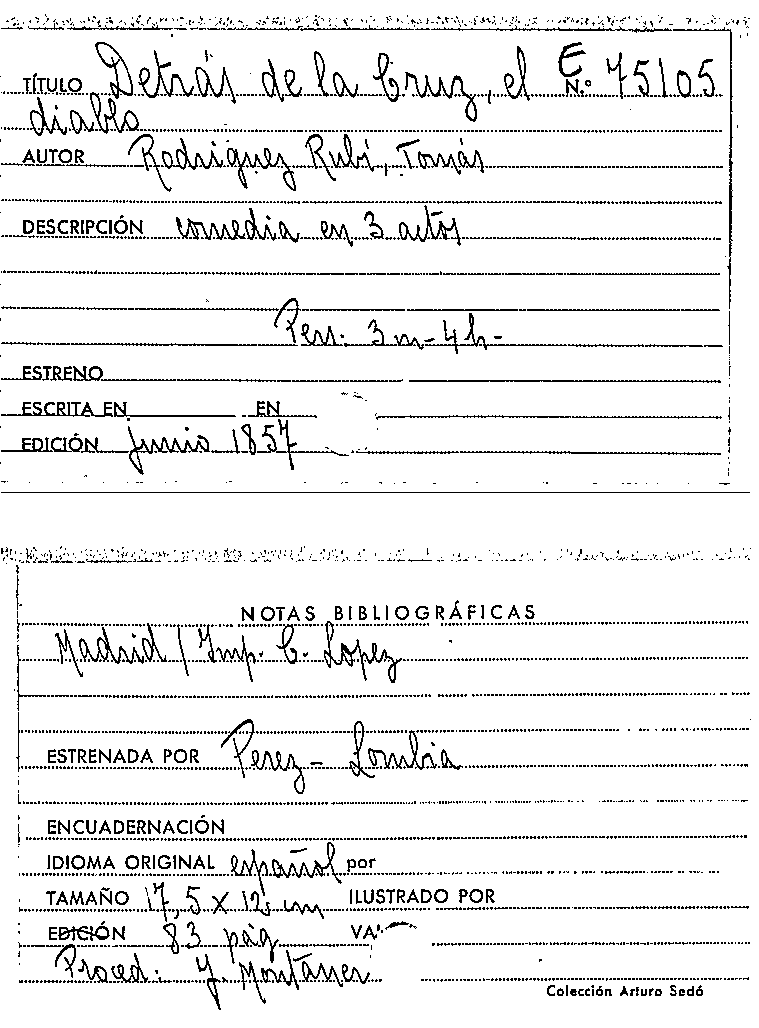 TÍTULO Detrás de la Cruz, el E N.º 75105
diablo
AUTOR Rodriguez Rubí, Tomás
DESCRIPCIÓN comedia en 3 actos
Pers: 3 m - 4 h -
ESTRENO
ESCRITA EN EN
EDICIÓN junio 1857
NOTAS BIBLIOGRÁFICAS
Madrid / Imp. C. Lopez
ESTRENADA POR Perez - Lombia
ENCUADERNACIÓN
IDIOMA ORIGINAL español por
TAMAÑO 17,5 x 12 cm ILUSTRADO POR
EDICIÓN 83 pág VA
Proced: J. Montaner
Colección Arturo Sedó